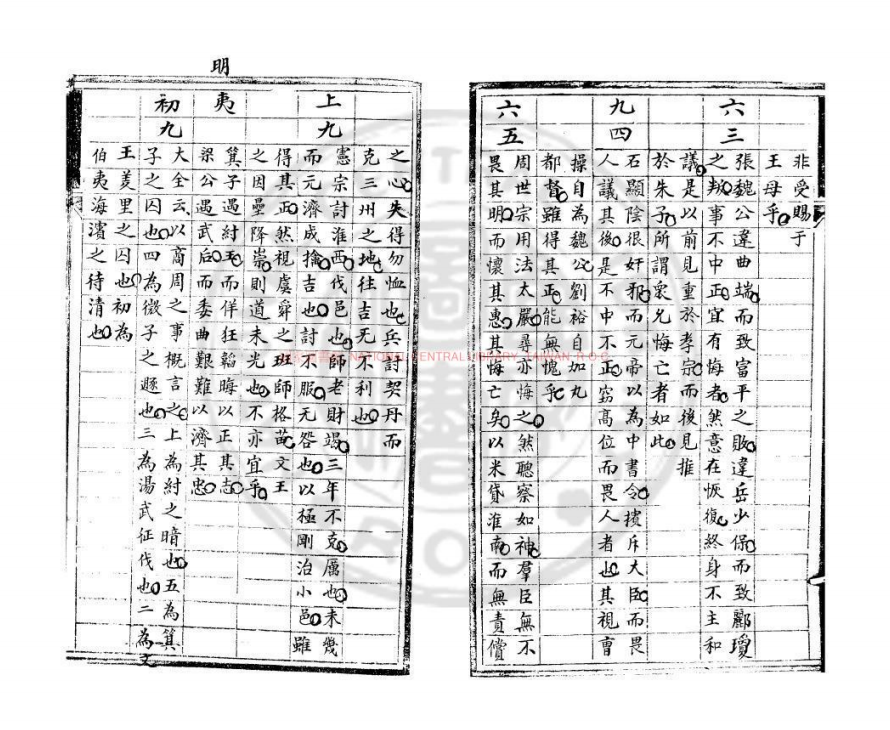 非受賜于
王母乎
六三
張魏公違曲端而致富平之敗違岳少保而致酈瓊
之叛事不中正宜有悔者然意在恢復終身不主和
議是以前見重於孝宗而後見推
於朱子所謂衆允悔亡者如此
九四
石顯陰很奸邪而元帝以為中書令擯斥大臣而畏
人議其後是不中不正竊高位而畏人者也其視曹
操自為魏公劉裕自加九
都督雖得其正能無愧乎
六五
周世宗用法太嚴尋亦悔之然聰察如神羣臣無不
畏其明而懷其惠其悔亡矣以米貸淮南而無責償
之心失得勿恤也兵討契丹而
克三州之地往吉无不利也
上九
憲宗討淮西伐邑也師老財竭三年不克厲也未幾
而元濟成擒吉也討不服无咎也以極剛治小邑雖
得其正然視虞舜之班師格苗文王
之因壘降崇則道未光也不亦宜乎
明
夷
箕子遇紂王而佯狂韜晦以正其志
梁公遇武后而委曲艱難以濟其忠
初九
大全云以商周之事概言之上為紂之暗也五為箕
子之囚也四為微子之遯也三為湯武征伐也二為文
王羑里之囚也初為
伯夷海濱之待清也
NATIONAL CENTRAL LIBRARY, TAIWAN, R.O.C